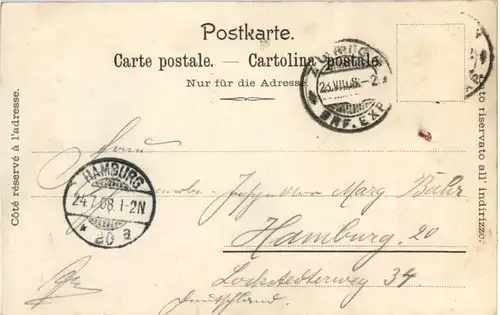 Postkarte.
Carte postale. — Cartolina postale.
Nur für die Adresse
Côté réservé à l'adresse.
riservato all' indirizzo.
BRF. EXP.
HAMBURG
24.7.08.1-2N
* 20 a
Herrn
Marg Bähr
Hamburg. 20
Lockstedterweg 34
Deutschland.